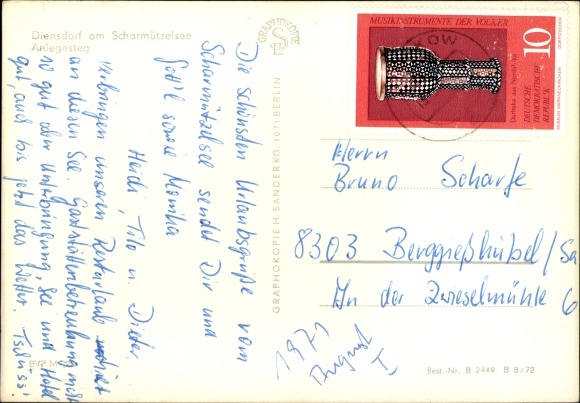 Diensdorf am Scharmützelsee
Anlegesteg
Die schönsten Urlaubsgrüße vom
Scharmützelsee sendet Dir und
sowie Monika
Heidi, Tilo u. Dieter
Verbringen unseren Resturlaub
an diesem See. Gaststättenbetreuung nicht
so gut aber Unterbringung, See und Hotel
gut, auch bis jetzt das Wetter. Tschüss!
GRAPHOKOPIE
GRAPHOKOPIE H. SANDER KG, 1071 BERLIN
MUSIKINSTRUMENTE DER VÖLKER
10
DEUTSCHE
DEMOKRATISCHE
REPUBLIK
Herrn
Bruno Scharfe
8303 Berggießhübel/Sa
An der Zwieselmühle 6
1971
August
I
Best.-Nr. B 2449 B 8/72